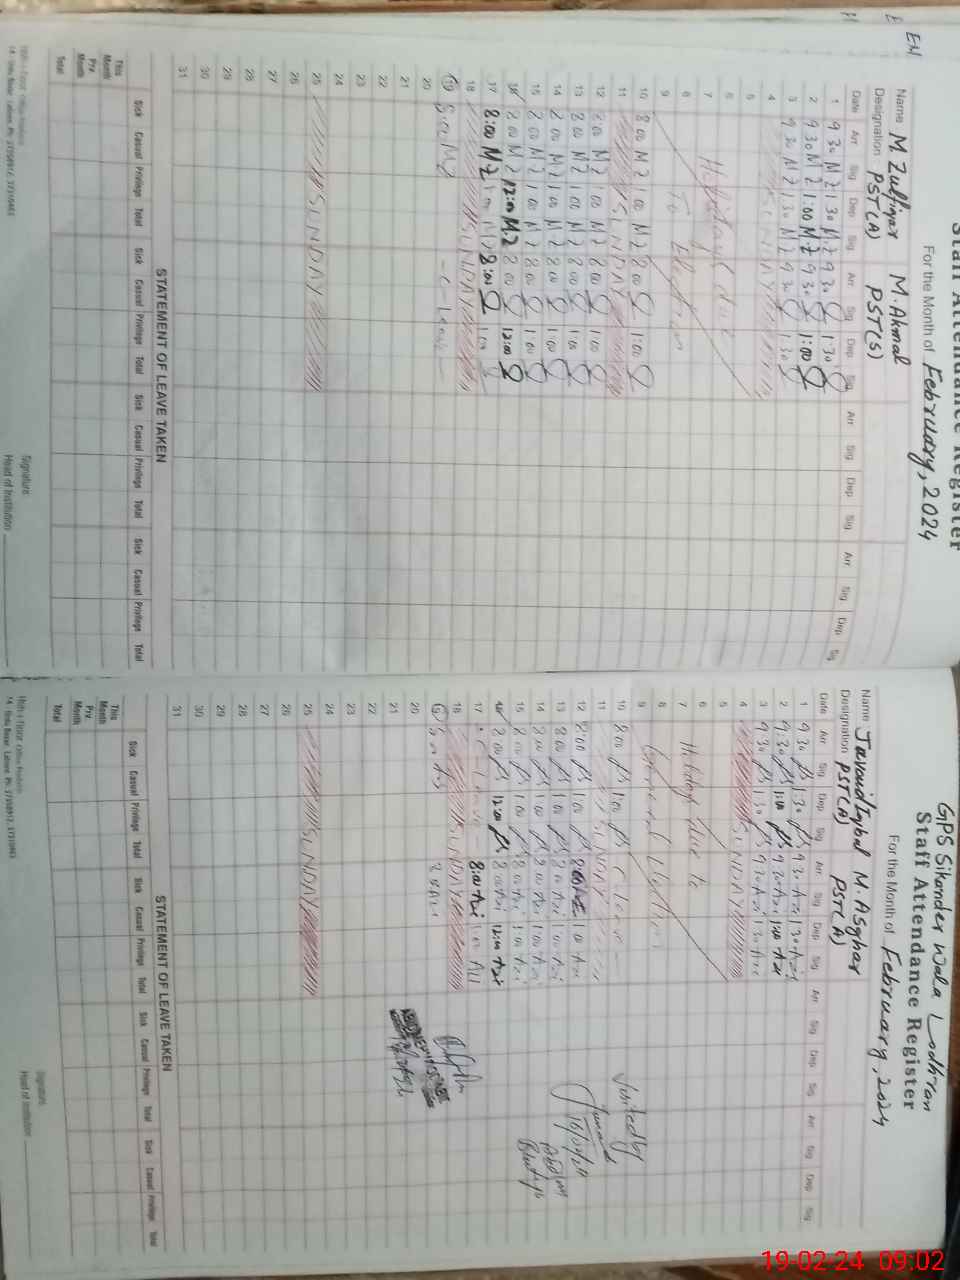 Staff Attendance Register
For the Month of February, 2024
Name M. Zulfiqar M. Akmal
Designation PST(A) PST(S)
Date Arr Sig Dep Sig Arr Sig Dep Sig Arr Sig Dep Sig Arr Sig Dep Sig
1 9 30 M.Z 1 30 M.Z 9 30 1 30
2 9 30 M.Z 1:00 M.Z 9 30 1:00
3 9 30 M.Z 1 30 M.Z 9 30 1 30
4 SUNDAY
5
6
7 Holidays due
8 To Election
9
10 8 00 M.Z 1 00 M.Z 8 00 1:00
11 SUNDAY
12 8 00 M.Z 1 00 M.Z 8 00 1 00
13 8 00 M.Z 1 00 M.Z 8 00 1 00
14 8 00 M.Z 1 00 M.Z 8 00 1:00
15 8 00 M.Z 1 00 M.Z 8 00 1:00
16 8 00 M.Z 12:00 M.Z 8 00 12:00
17 8:00 M.Z 1:00 M.Z 8:00 1:00
18 SUNDAY
19 8:00 M.Z - C - Leave -
20
21
22
23
24
25 SUNDAY
26
27
28
29
30
31
STATEMENT OF LEAVE TAKEN
Sick Casual Privilege Total Sick Casual Privilege Total Sick Casual Privilege Total Sick Casual Privilege Total
This Month
Prv. Month
Total
Signature
Head of Institution
GPS Sikander Wala Lodhran
Staff Attendance Register
For the Month of February, 2024
Name Javaid Iqbal M. Asghar
Designation PST(A) PST(A)
Date Arr Sig Dep Sig Arr Sig Dep Sig Arr Sig Dep Sig Arr Sig Dep Sig
1 9 30 1 30 9 30 1 30
2 9:30 1:00 9 30 1:00
3 9 30 1 30 9 30 1 30
4 SUNDAY
5
6
7 Holidays due to
8 General Election
9
10 8:00 1:00 C Leave -
11 SUNDAY
12 8:00 1:00 8:00 1:00
13 8:00 1:00 8:00 1:00
14 8:00 1:00 8:00 1:00
15 8:00 1:00 8:00 1:00
16 8:00 12:00 8:00 12:00
17 - C - Leave - 8:00 1:00
18 SUNDAY
19
20
21
22
23
24
25 SUNDAY
26
27
28
29
30
31
Visited by
STATEMENT OF LEAVE TAKEN
Sick Casual Privilege Total Sick Casual Privilege Total Sick Casual Privilege Total Sick Casual Privilege Total
This Month
Prv. Month
Total
Signature
Head of Institution
19-02-24 09:02